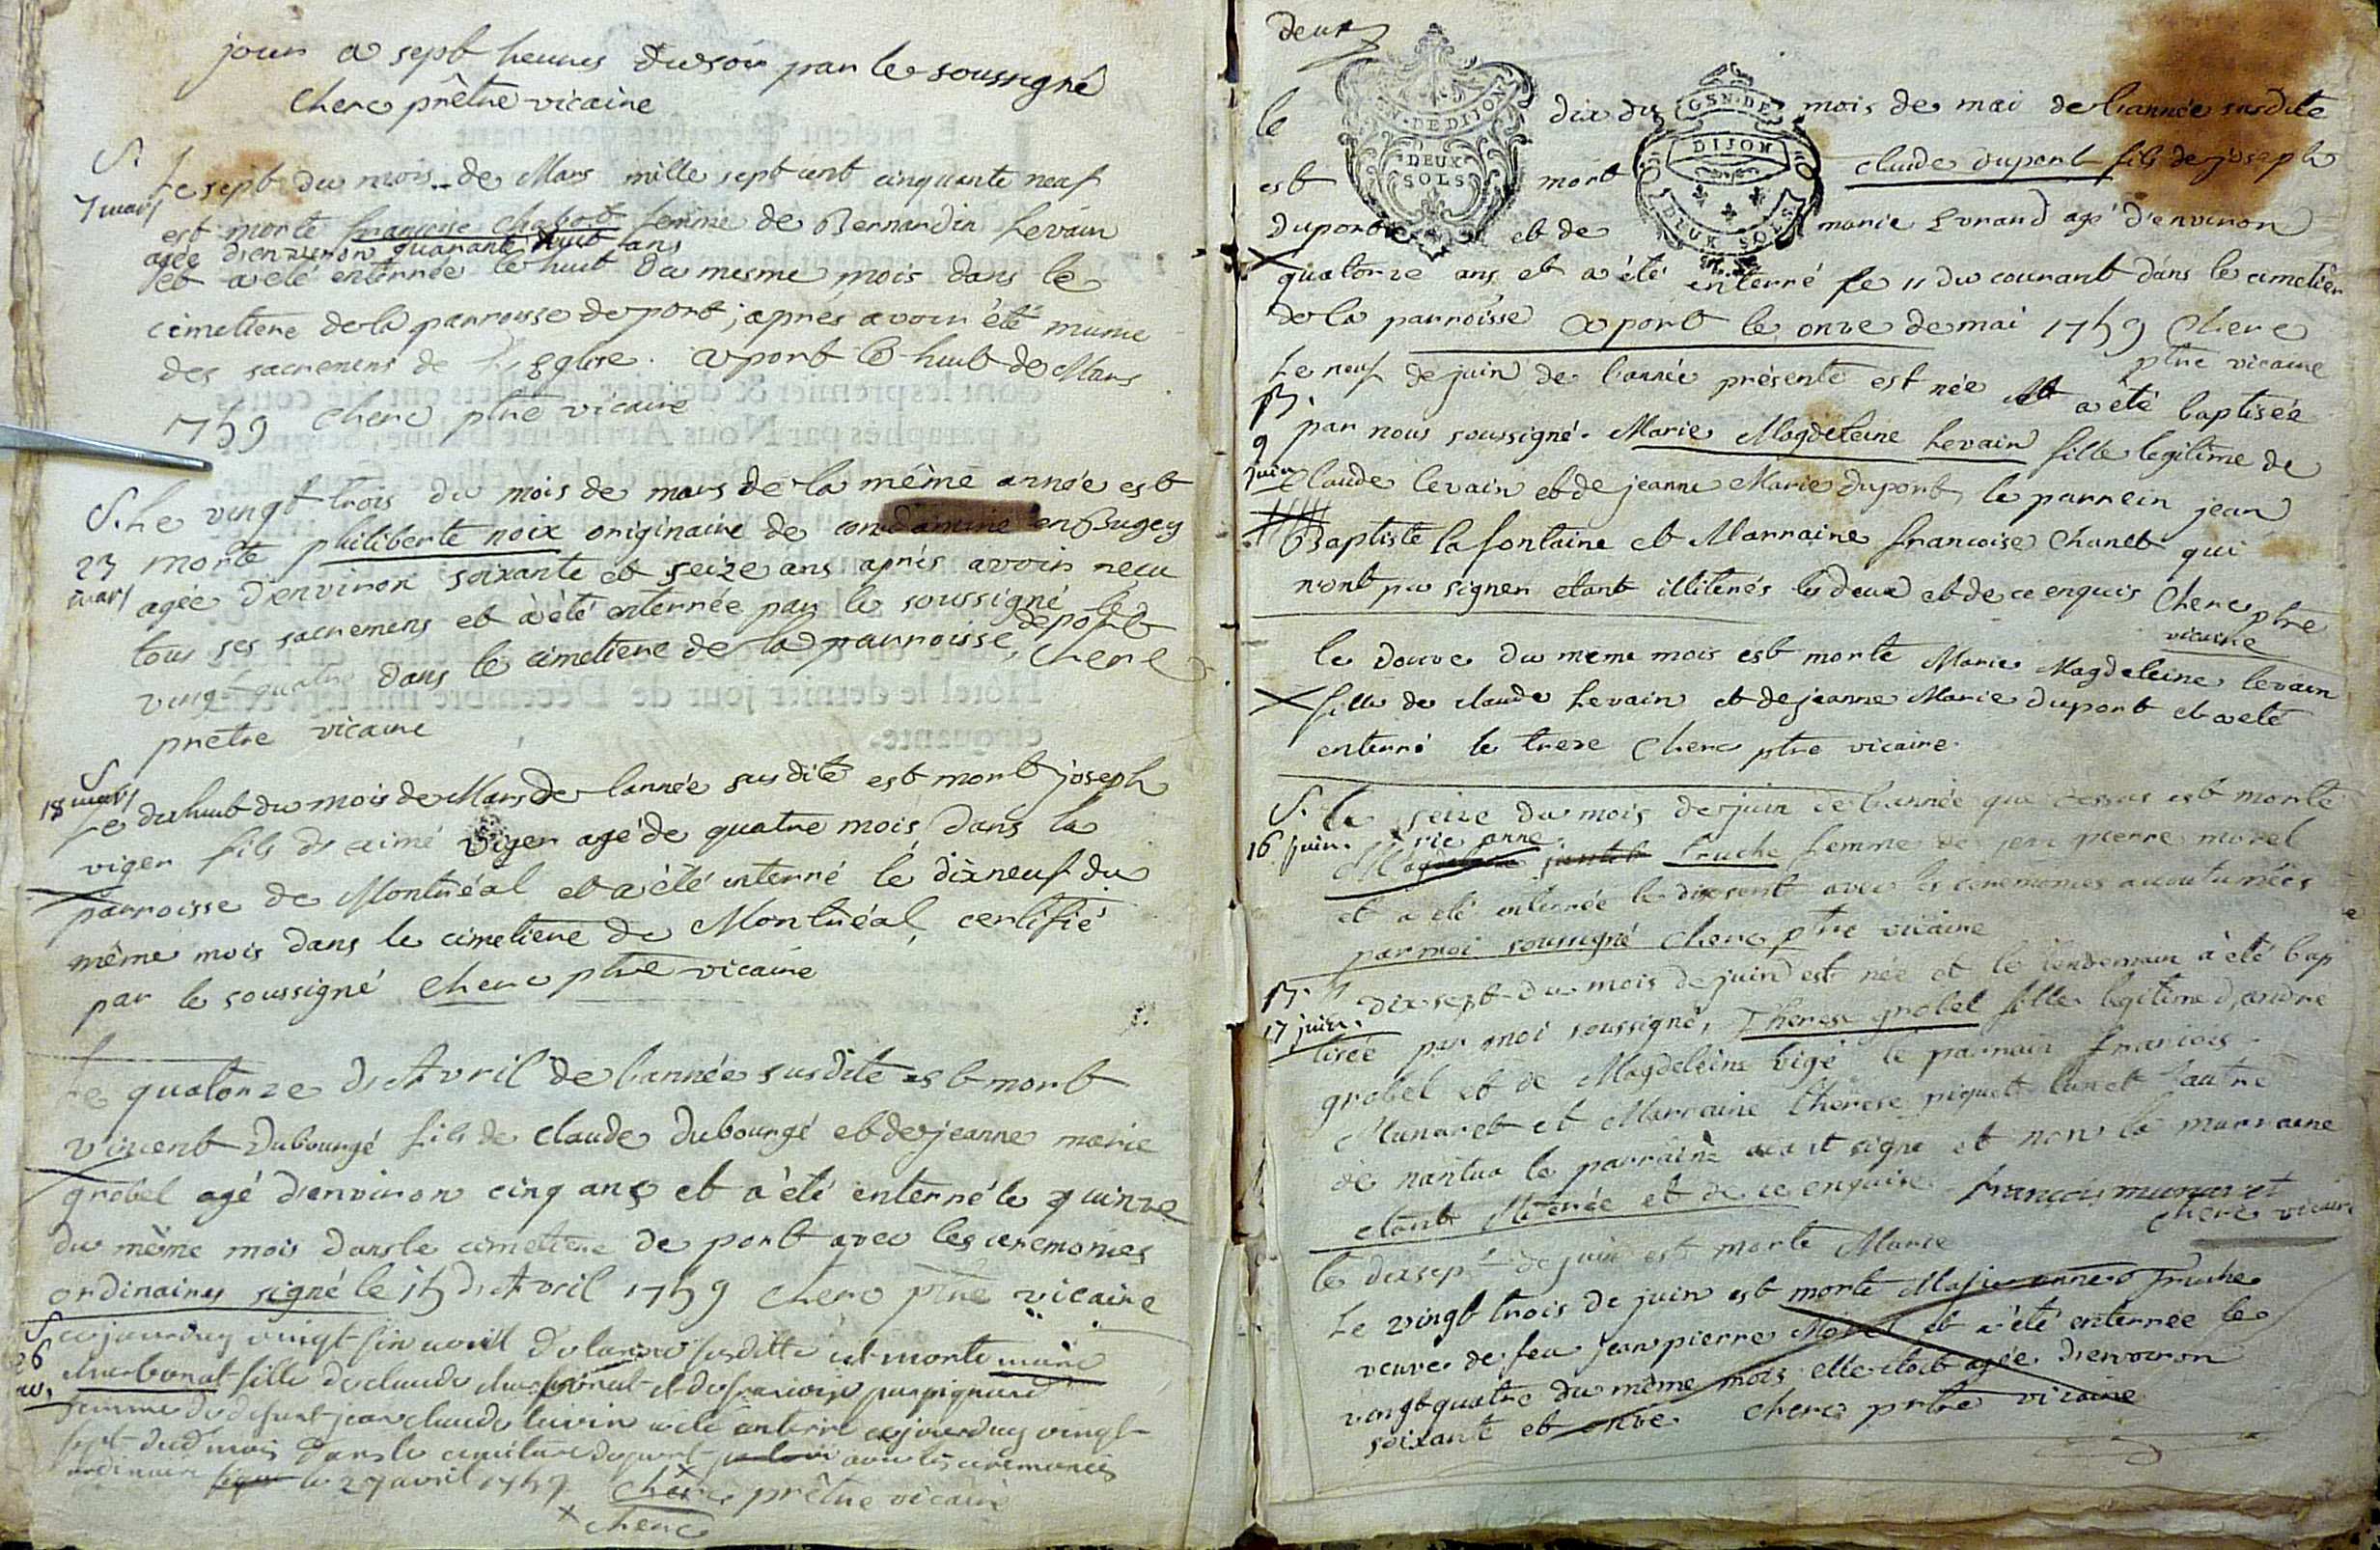 jour a sept heures du soir par le soussigné
Cherc prêtre vicaire
S.
7 mars
Le sept du mois de Mars mille sept cent cinquante neuf
est morte françoise Chabot femme de Bernardin Levain
agée d'environ quarante huit ans
et a été enterrée le huit du mesme mois dans le
cimetiere de la parroisse de port, après avoir été munie
des sacremens de l'Eglise. a port le huit de Mars
1759 Cherc ptre vicaire
S. Le vingt trois du mois de mars de la même année est
23 mars
morte philiberte noix originaire de condamine en Bugey
agée d'environ soixante et seize ans après avoir recu
tous ses sacremens et a été enterrée par le soussigné le
vingt quatre dans le cimetiere de la parroisse de port Cherc
prètre vicaire
S
18 mars
Le dix huit du mois de Mars de lannée susdite est mort joseph
viger fils de aimé viger agé de quatre mois, dans la
parroisse de Montréal et a été enterré le dixneuf du
même mois dans le cimetiere de Montréal, certifié
par le soussigné Cherc ptre vicaire
Le quatorze de Avril de l'année susdite est mort
vincent Dubourgé fils de claude Dubourgé et de jeanne marie
grobel agé d'environ cinq ans et a été enterré le quinze
du même mois dans le cimetiere de port avec les ceremonies
ordinaires signé le 15 de Avril 1759 Cherc ptre vicaire
S
26
av.
cejourduy vingt six avril de lannée susditte est morte marie
charbonat fille de claude charbonat et de françoise
femme de defunt jean claude levain a été enterré cejourduy vingt
sept dud mois dans le cimetiere de port avec les ceremonies
ordinaire le 27 avril 1759 Cherc prêtre vicaire
x cherc
deux
N·DE DIJON
DEUX
SOLS
GEN·DE
DIJON
DEUX SOLS
le dix du mois de mai de l'année susdite
est mort claude dupont fils de joseph
dupont et de marie Evrand agé d'environ
quatorze ans et a été enterré le 11 du courant dans le cimetiere
de la parroisse a port le onze de mai 1759 Cherc
ptre vicaire
Le neuf de juin de l'année présente est née et a été baptisée
B.
9
juin
par nous soussigné. Marie Magdeleine Levain fille legitime de
Claude levain et de jeanne Marie dupont, le parrein jean
Baptiste lafontaine et Marraine francoise Chanet qui
n'ont pu signer etant illiterés les deux et de ce enquis Cherc ptre
vicaire
le douze du meme mois est morte Marie Magdeleine levain
fille de claude Levain et de jeanne Marie dupont et a eté
enterré le treze Cherc ptre vicaire.
S. le seize du mois de juin de l'année que dessus est morte
16 juin.
rie anne
truche femme de jean pierre morel
et a eté enterrée le dixsept avec les ceremonies accoutumées
par moi soussigné Cherc ptre vicaire
B.
17 juin.
dix sept du mois de juin est née et le lendemain à été bap
tisée par moi soussigné, Therese grobel fille legitime d'andré
grobel et de Magdeleine vigé le parrain francois
Munaret et Marraine therese piquet lun et lautre
de nantua le parraine aiant signé et non la marraine
etant illiterée et de ce enquise francois munaret
Cherc vicaire
le dixsept de juin est morte Marie
Le vingt trois de juin est morte Marie anne truche
veuve de feu jean pierre Morel et a été enterrée le
vingt quatre du même mois elle etoit agée d'environ
soixante et onze Cherc prtre vicaire